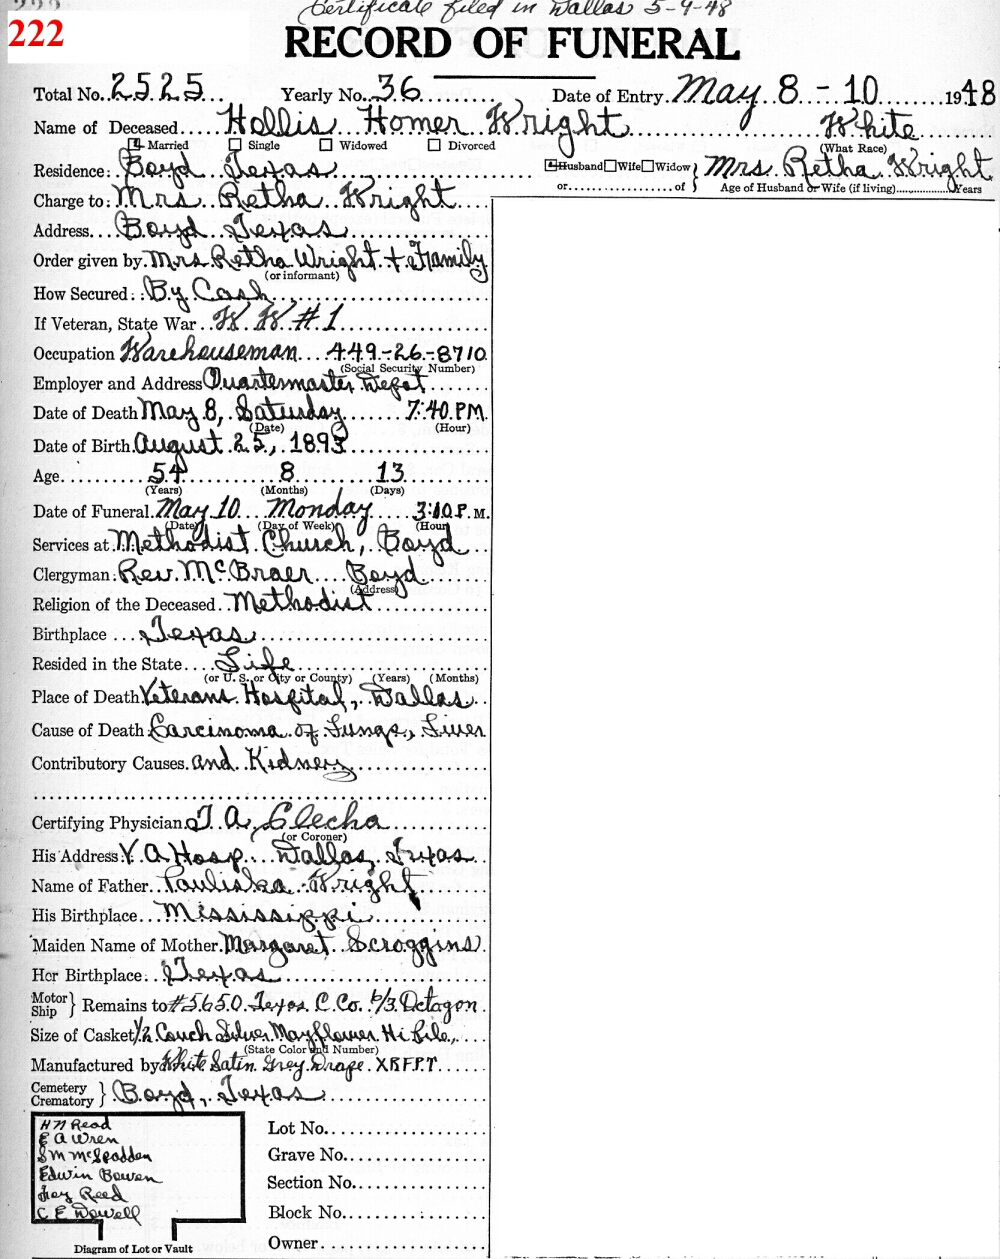 Certificate filed in Dallas 5-9-48
222
RECORD OF FUNERAL
Total No. 2525 Yearly No. 36 Date of Entry May 8 - 10 1948
Name of Deceased Hollis Homer Wright White
Married Single Widowed Divorced (What Race)
Residence: Boyd Texas Husband Wife Widow Mrs. Retha Wright
or of Age of Husband or Wife (if living) Years
Charge to: Mrs. Retha Wright
Address Boyd Texas
Order given by Mrs. Retha Wright + Family
(or informant)
How Secured: By Cash
If Veteran, State War W W #1
Occupation Warehouseman 449-26-8710
(Social Security Number)
Employer and Address Quartermaster Depot
Date of Death May 8, Saturday 7:40 P.M.
(Date) (Hour)
Date of Birth August 25, 1893
Age 54 8 13
(Years) (Months) (Days)
Date of Funeral May 10 Monday 3:10 P.M.
(Date) (Day of Week) (Hour)
Services at Methodist Church, Boyd
Clergyman: Rev. McBraer Boyd
(Address)
Religion of the Deceased Methodist
Birthplace Texas
Resided in the State Life
(or U. S. or City or County) (Years) (Months)
Place of Death Veterans Hospital, Dallas
Cause of Death Carcinoma of Lungs, Liver
Contributory Causes and Kidneys
Certifying Physician T. A. Clecha
(or Coroner)
His Address: V. A Hosp. Dallas, Texas
Name of Father Pauliska Wright
His Birthplace Mississippi
Maiden Name of Mother Margaret Scroggins
Her Birthplace: Texas
Motor Ship } Remains to #5650 Texas C. Co. 6/3 Octagon
Size of Casket 1/2 Couch Silver Mayflower Hi Pile
(State Color and Number)
Manufactured by White Satin Grey Drape
Cemetery Crematory } Boyd, Texas
H N Read
E A Wren
S M McSpadden
Edwin Bowen
Reed
C E Dowell
Lot No.
Grave No.
Section No.
Block No.
Owner
Diagram of Lot or Vault